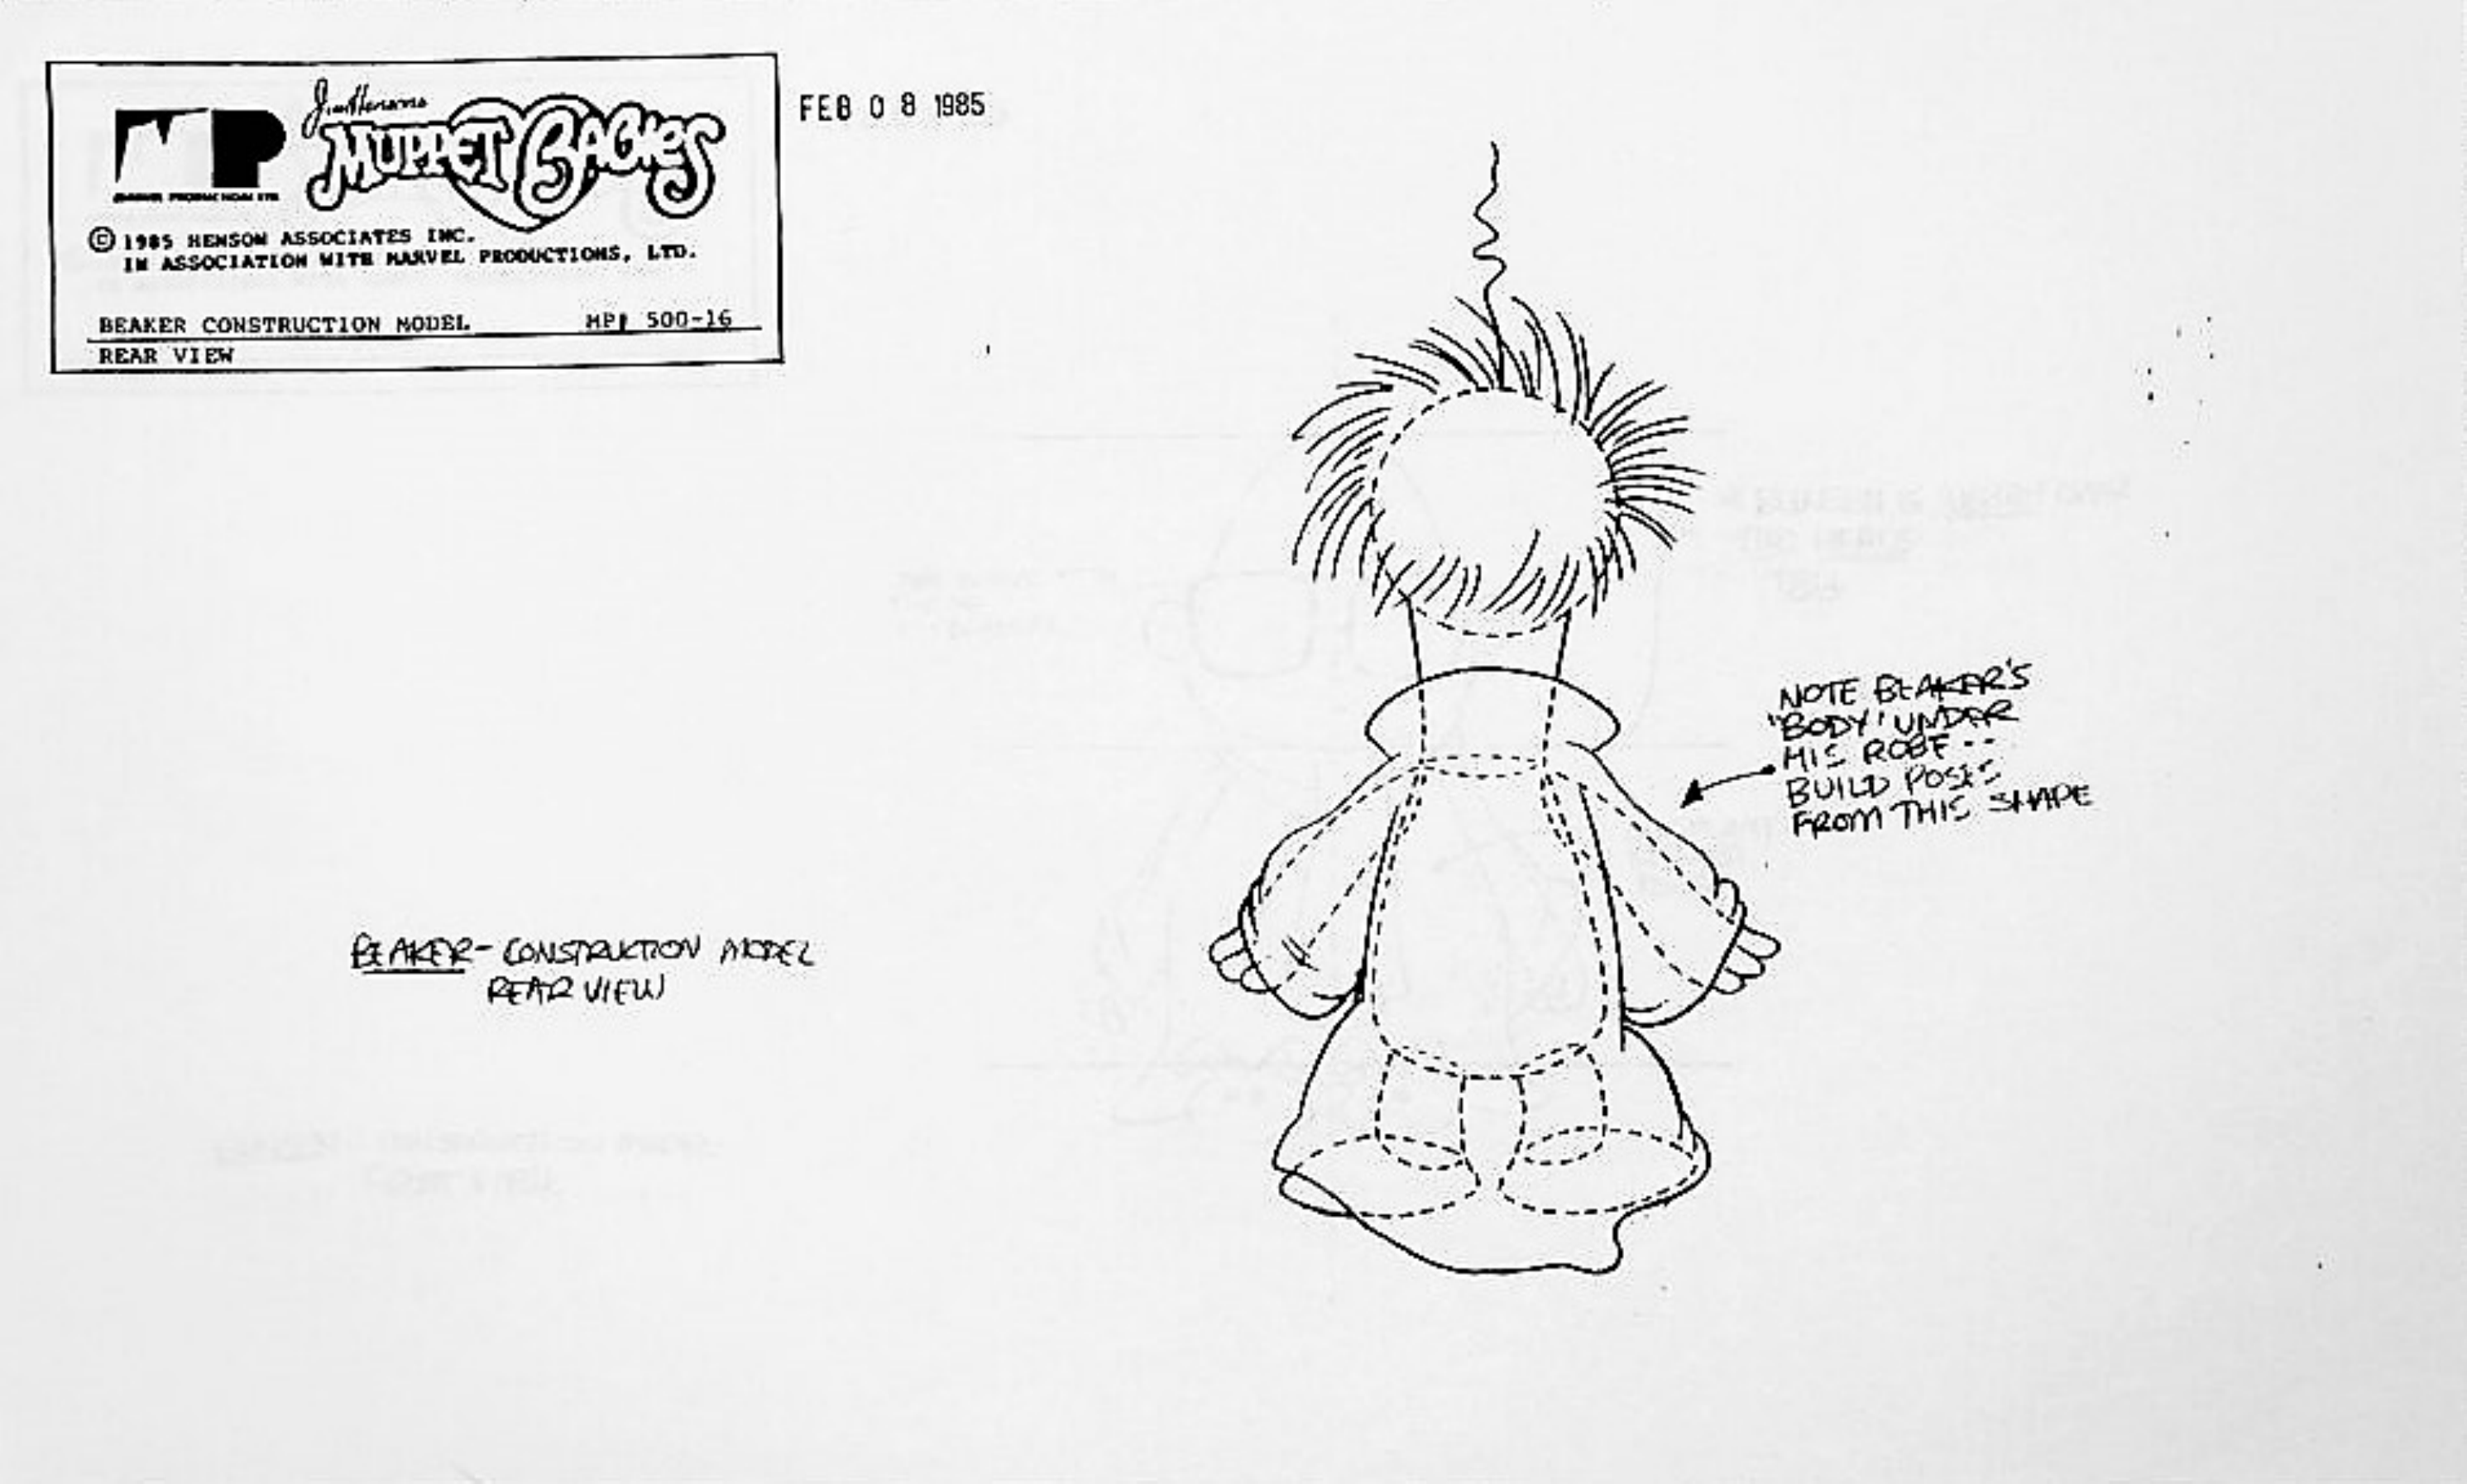 Jim Henson's
MUPPET BABIES
MP
© 1985 HENSON ASSOCIATES INC.
IN ASSOCIATION WITH MARVEL PRODUCTIONS, LTD.
BEAKER CONSTRUCTION MODEL MP# 500-16
REAR VIEW
FEB 08 1985
NOTE BEAKER'S
"BODY" UNDER
HIS ROBE--
BUILD POSES
FROM THIS SHAPE
BEAKER- CONSTRUCTION MODEL
REAR VIEW